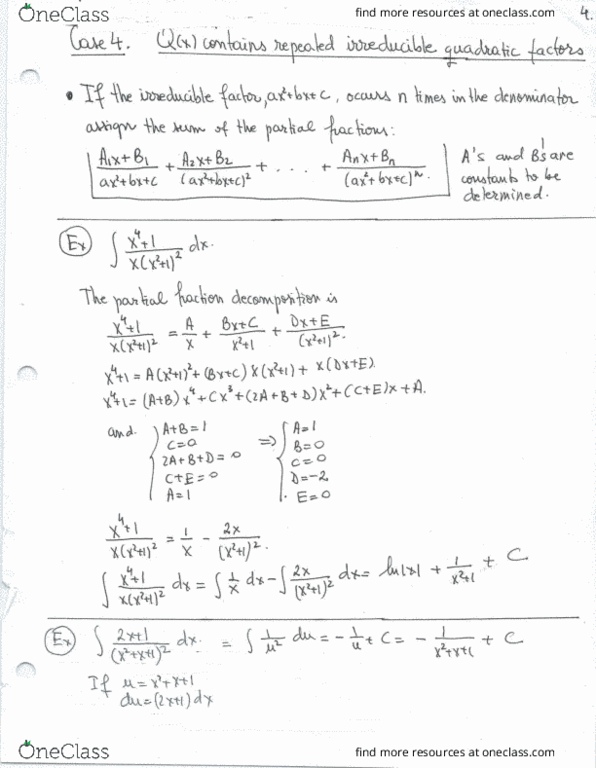 OneClass
find more resources at oneclass.com
4.
Case 4. Q(x) contains repeated irreducible quadratic factors
• If the irreducible factor, ax²+bx+c, occurs n times in the denominator
assign the sum of the partial fractions:
(A₁x+B₁)/(ax²+bx+c) + (A₂x+B₂)/(ax²+bx+c)² + . . . + (Aₙx+Bₙ)/(ax²+bx+c)ⁿ.
A's and B's are
constants to be
determined.
Ex ∫ (x⁴+1)/(x(x²+1)²) dx.
The partial fraction decomposition is
(x⁴+1)/(x(x²+1)²) = A/x + (Bx+C)/(x²+1) + (Dx+E)/(x²+1)².
x⁴+1 = A(x²+1)²+(Bx+C) x(x²+1) + x(Dx+E).
x⁴+1 = (A+B)x⁴+Cx³+(2A+B+D)x²+(C+E)x+A.
and. { A+B=1 ⇒ { A=1
C=0 B=0
2A+B+D=0 C=0
C+E=0 D=-2
A=1 E=0
(x⁴+1)/(x(x²+1)²) = 1/x - 2x/(x²+1)².
∫ (x⁴+1)/(x(x²+1)²) dx = ∫ 1/x dx - ∫ 2x/(x²+1)² dx = ln|x| + 1/(x²+1) + C
Ex ∫ (2x+1)/(x²+x+1)² dx. = ∫ 1/u² du = -1/u + C = - 1/(x²+x+1) + C
If u = x²+x+1
du = (2x+1) dx
OneClass
find more resources at oneclass.com